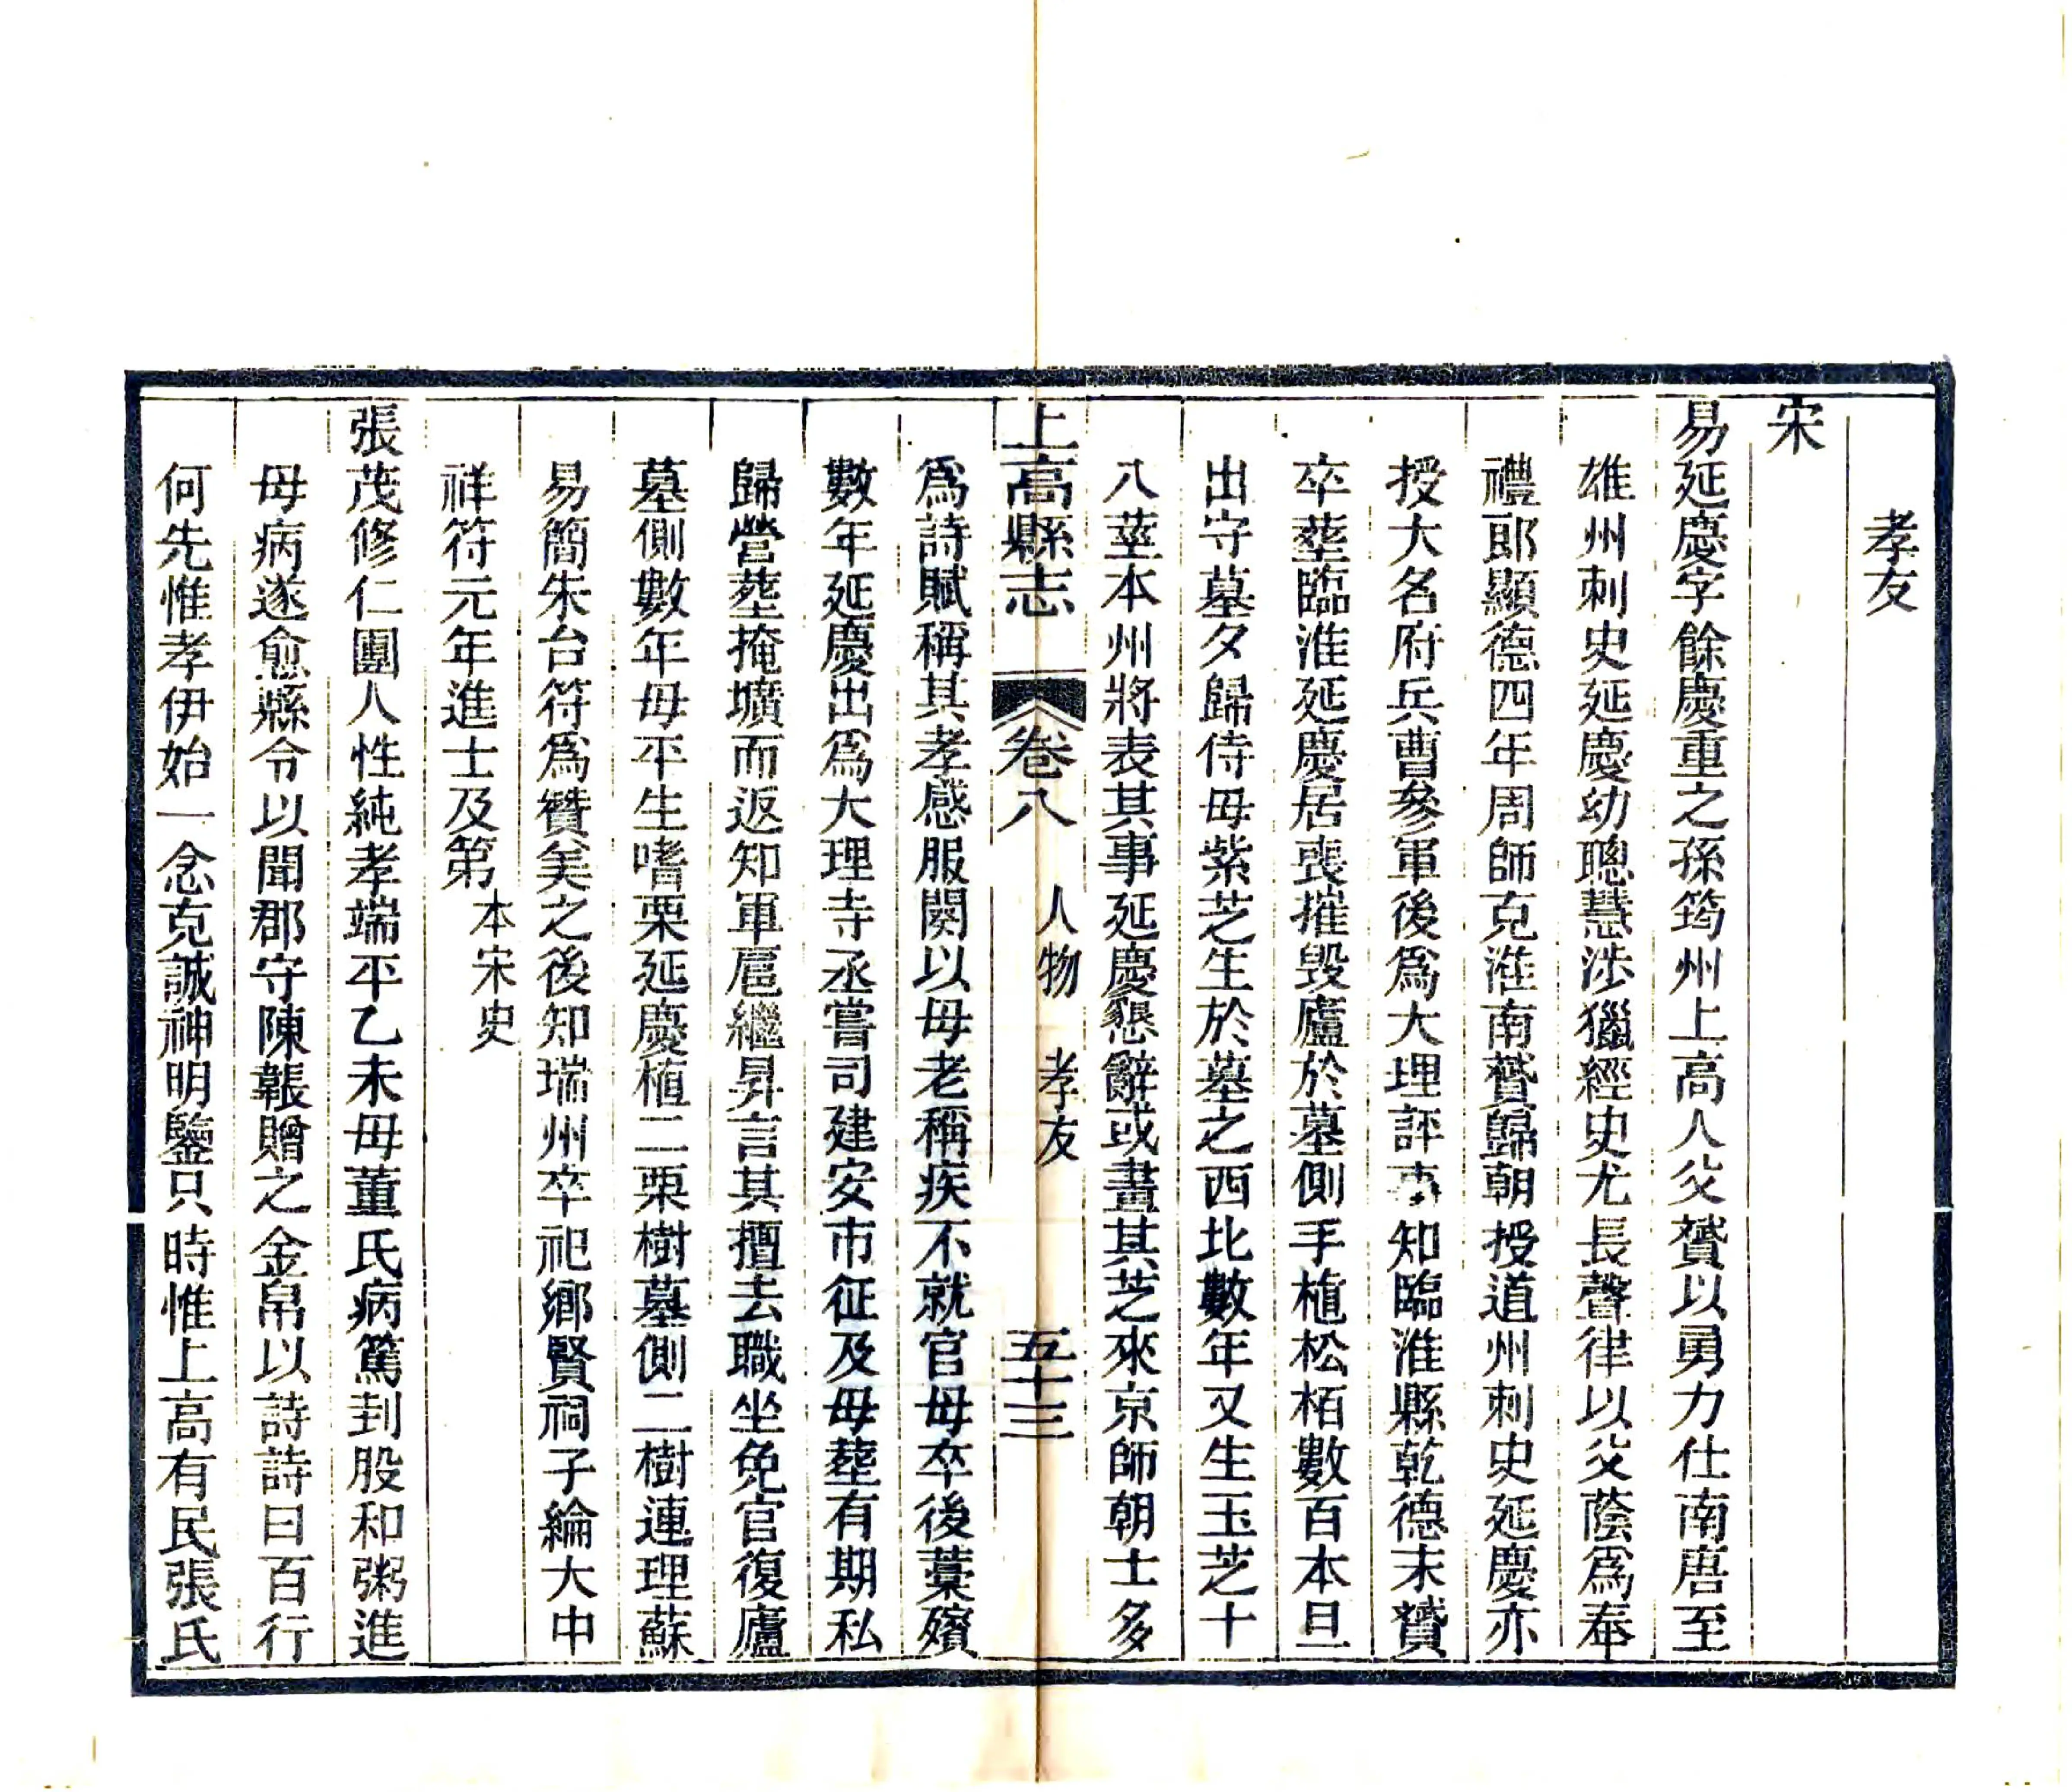 孝友
宋
易延慶字餘慶重之孫筠州上高人父贇以勇力仕南唐至
雄州刺史延慶幼聰慧涉獵經史尤長聲律以父蔭爲奉
禮郎顯德四年周師克淮南贇歸朝授道州刺史延慶亦
授大名府兵曹參軍後爲大理評事知臨淮縣乾德末贇
卒塟臨淮延慶居喪摧毀廬於墓側手植松栢數百本旦
出守墓夕歸侍母紫芝生於墓之西北數年又生玉芝十
八莖本州將表其事延慶懇辭或畫其芝來京師朝士多
上高縣志 卷八 人物 孝友 五十三
爲詩賦稱其孝感服闋以母老稱疾不就官母卒後藁殯
數年延慶出爲大理寺丞嘗司建安市征及母塟有期私
歸營塟掩壙而返知軍扈繼昇言其擅去職坐免官復廬
墓側數年母平生嗜栗延慶植二栗樹墓側二樹連理蘇
易簡朱台符爲贊美之後知瑞州卒祀鄉賢祠子綸大中
祥符元年進士及第本宋史
張茂修仁團人性純孝端平乙未母董氏病篤刲股和粥進
母病遂愈縣令以聞郡守陳韔贈之金帛以詩詩曰百行
何先惟孝伊始一念克誠神明鑒只時惟上高有民張氏